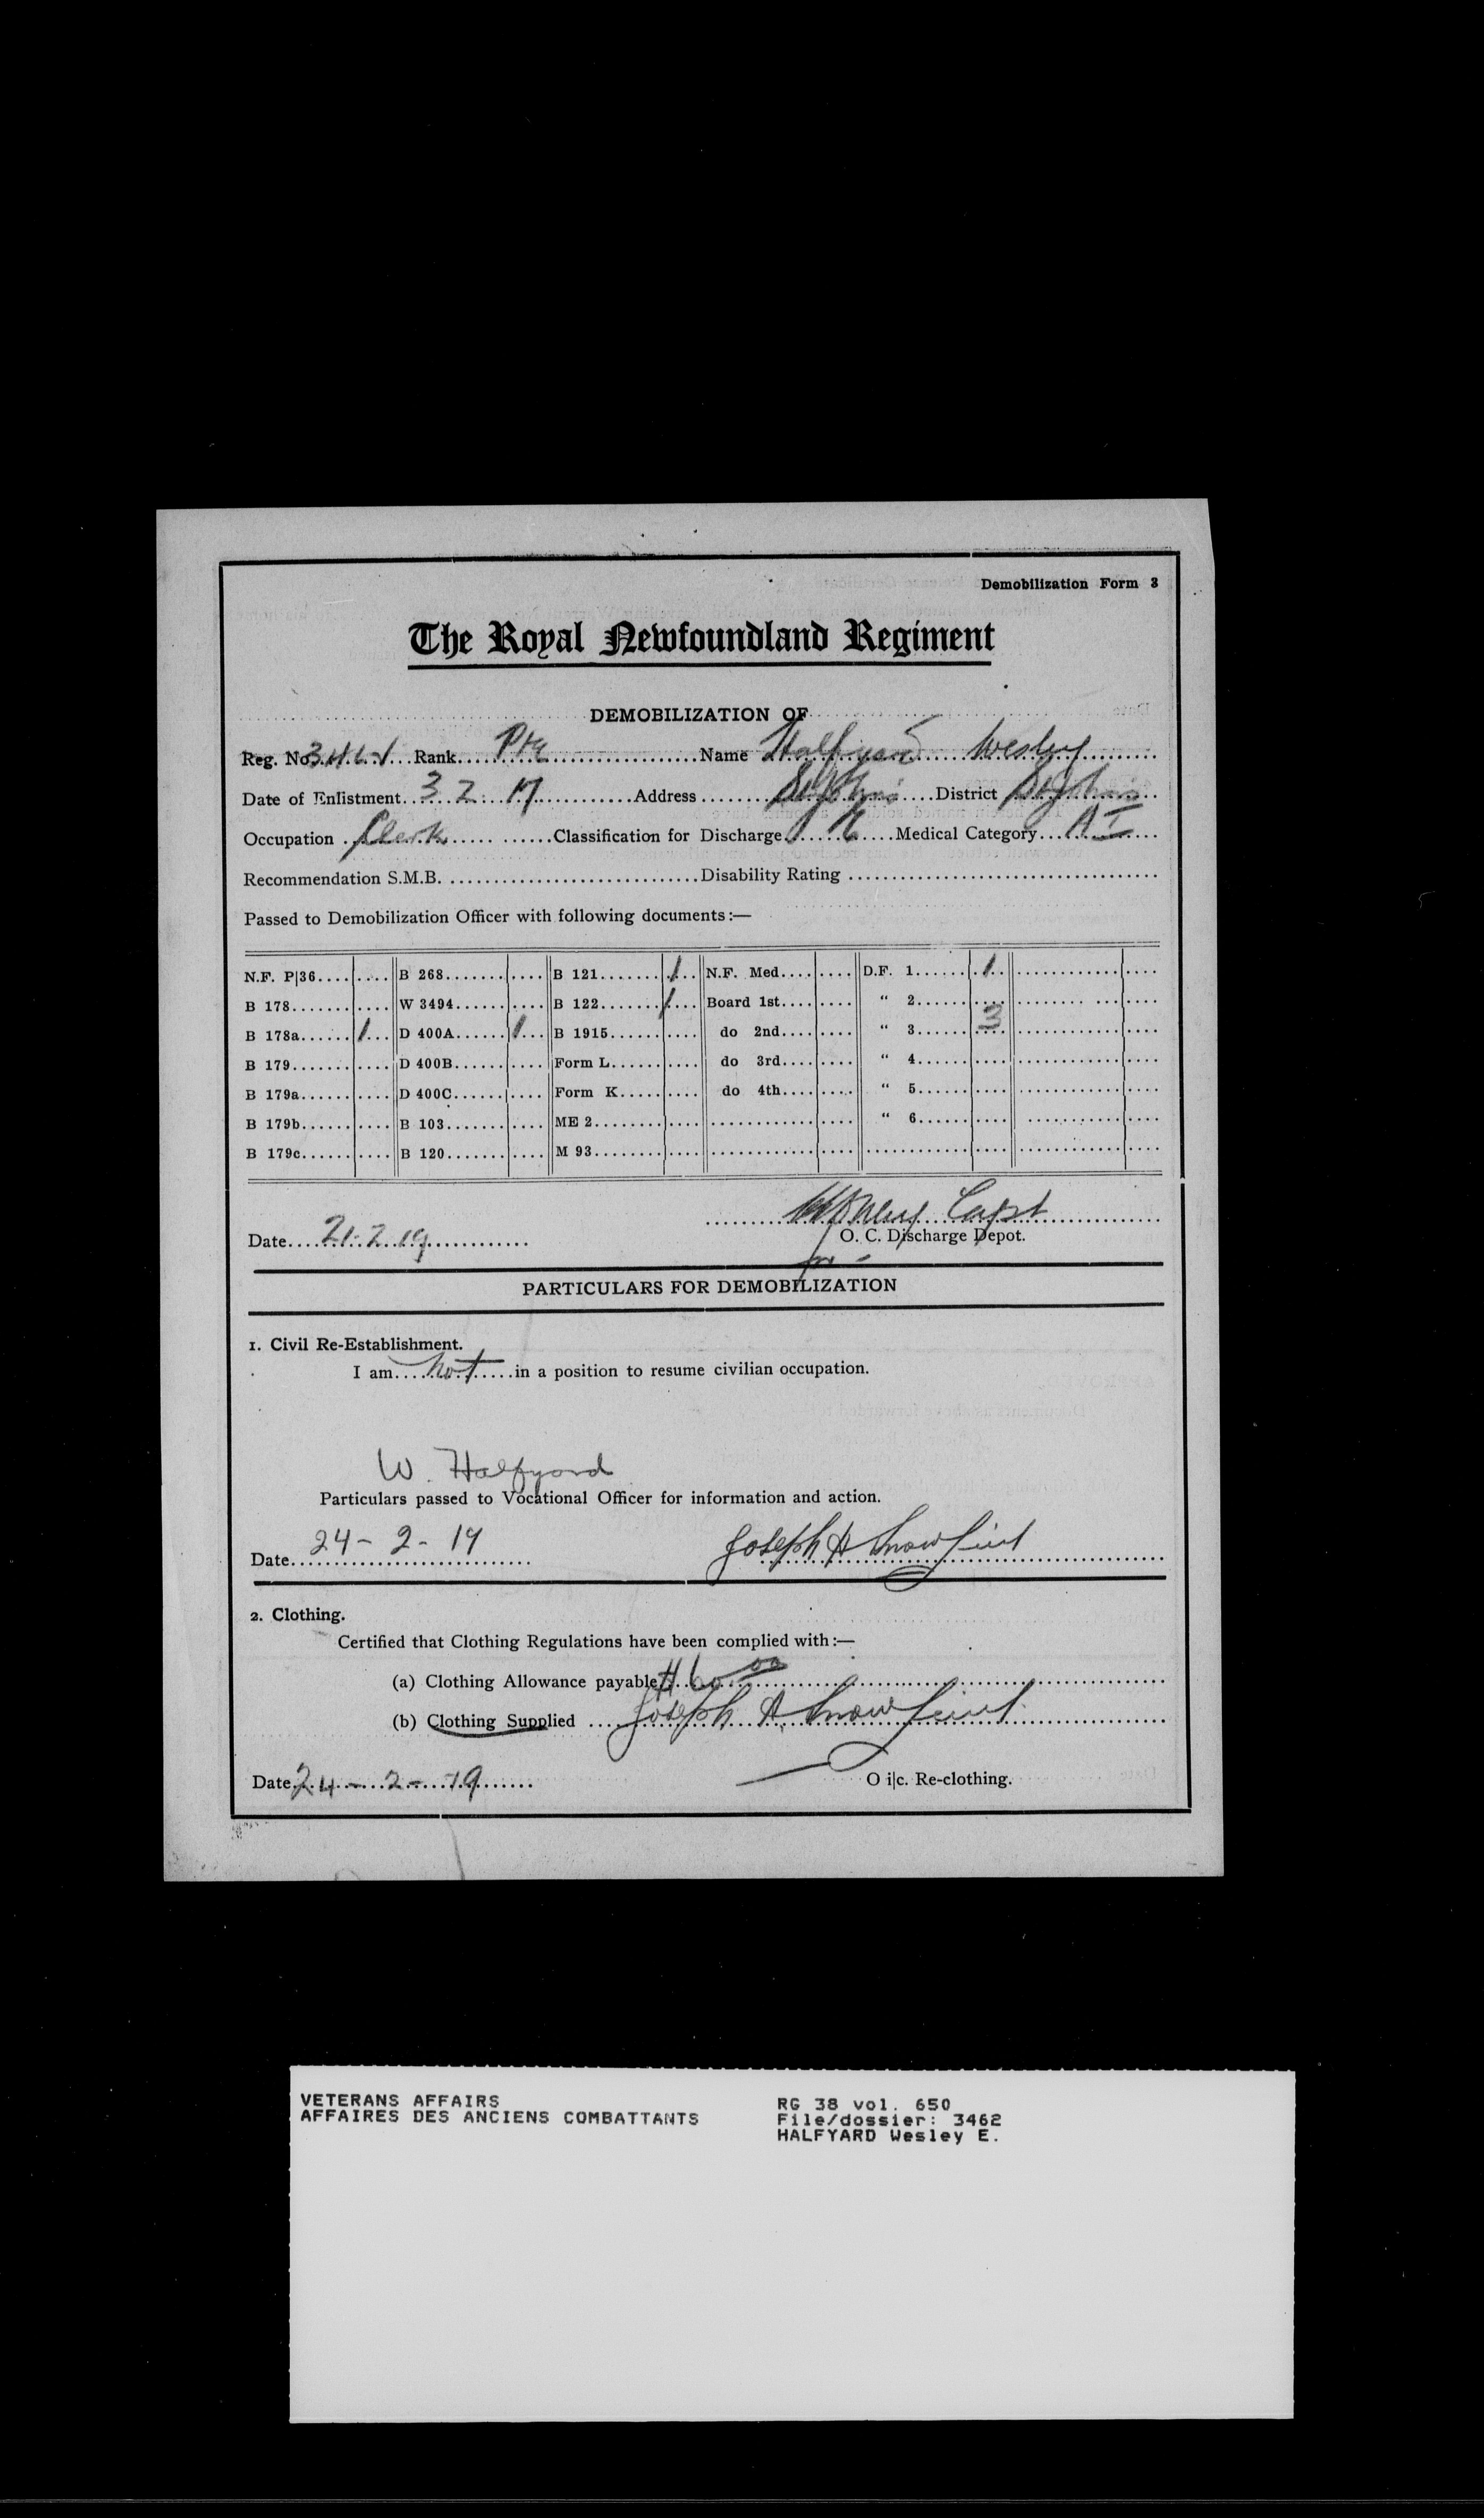 Demobilization Form 3
The Royal Newfoundland Regiment
DEMOBILIZATION OF
Reg. No. 3462 Rank Pte Name Halfyard Wesley
Date of Enlistment 3 2 17 Address St Johns District St Johns
Occupation Clerk Classification for Discharge Medical Category A I
Recommendation S.M.B. Disability Rating
Passed to Demobilization Officer with following documents:—
N.F. P|36 B 268 B 121 1 N.F. Med. D.F. 1 1
B 178 W 3494 B 122 1 Board 1st " 2
B 178a 1 D 400A 1 B 1915 do 2nd " 3 3
B 179 D 400B Form L do 3rd " 4
B 179a D 400C Form K do 4th " 5
B 179b B 103 ME 2 " 6
B 179c B 120 M 93
Capt
Date 21-2-19 O. C. Discharge Depot.
PARTICULARS FOR DEMOBILIZATION
1. Civil Re-Establishment.
I am not in a position to resume civilian occupation.
W. Halfyard
Particulars passed to Vocational Officer for information and action.
Date 24-2-19 Joseph A Snow Lieut
2. Clothing.
Certified that Clothing Regulations have been complied with:—
(a) Clothing Allowance payable $60.00
(b) Clothing Supplied Joseph A Snow Lieut
Date 24-2-19 O i|c. Re-clothing.
VETERANS AFFAIRS RG 38 vol. 650
AFFAIRES DES ANCIENS COMBATTANTS File/dossier: 3462
HALFYARD Wesley E.